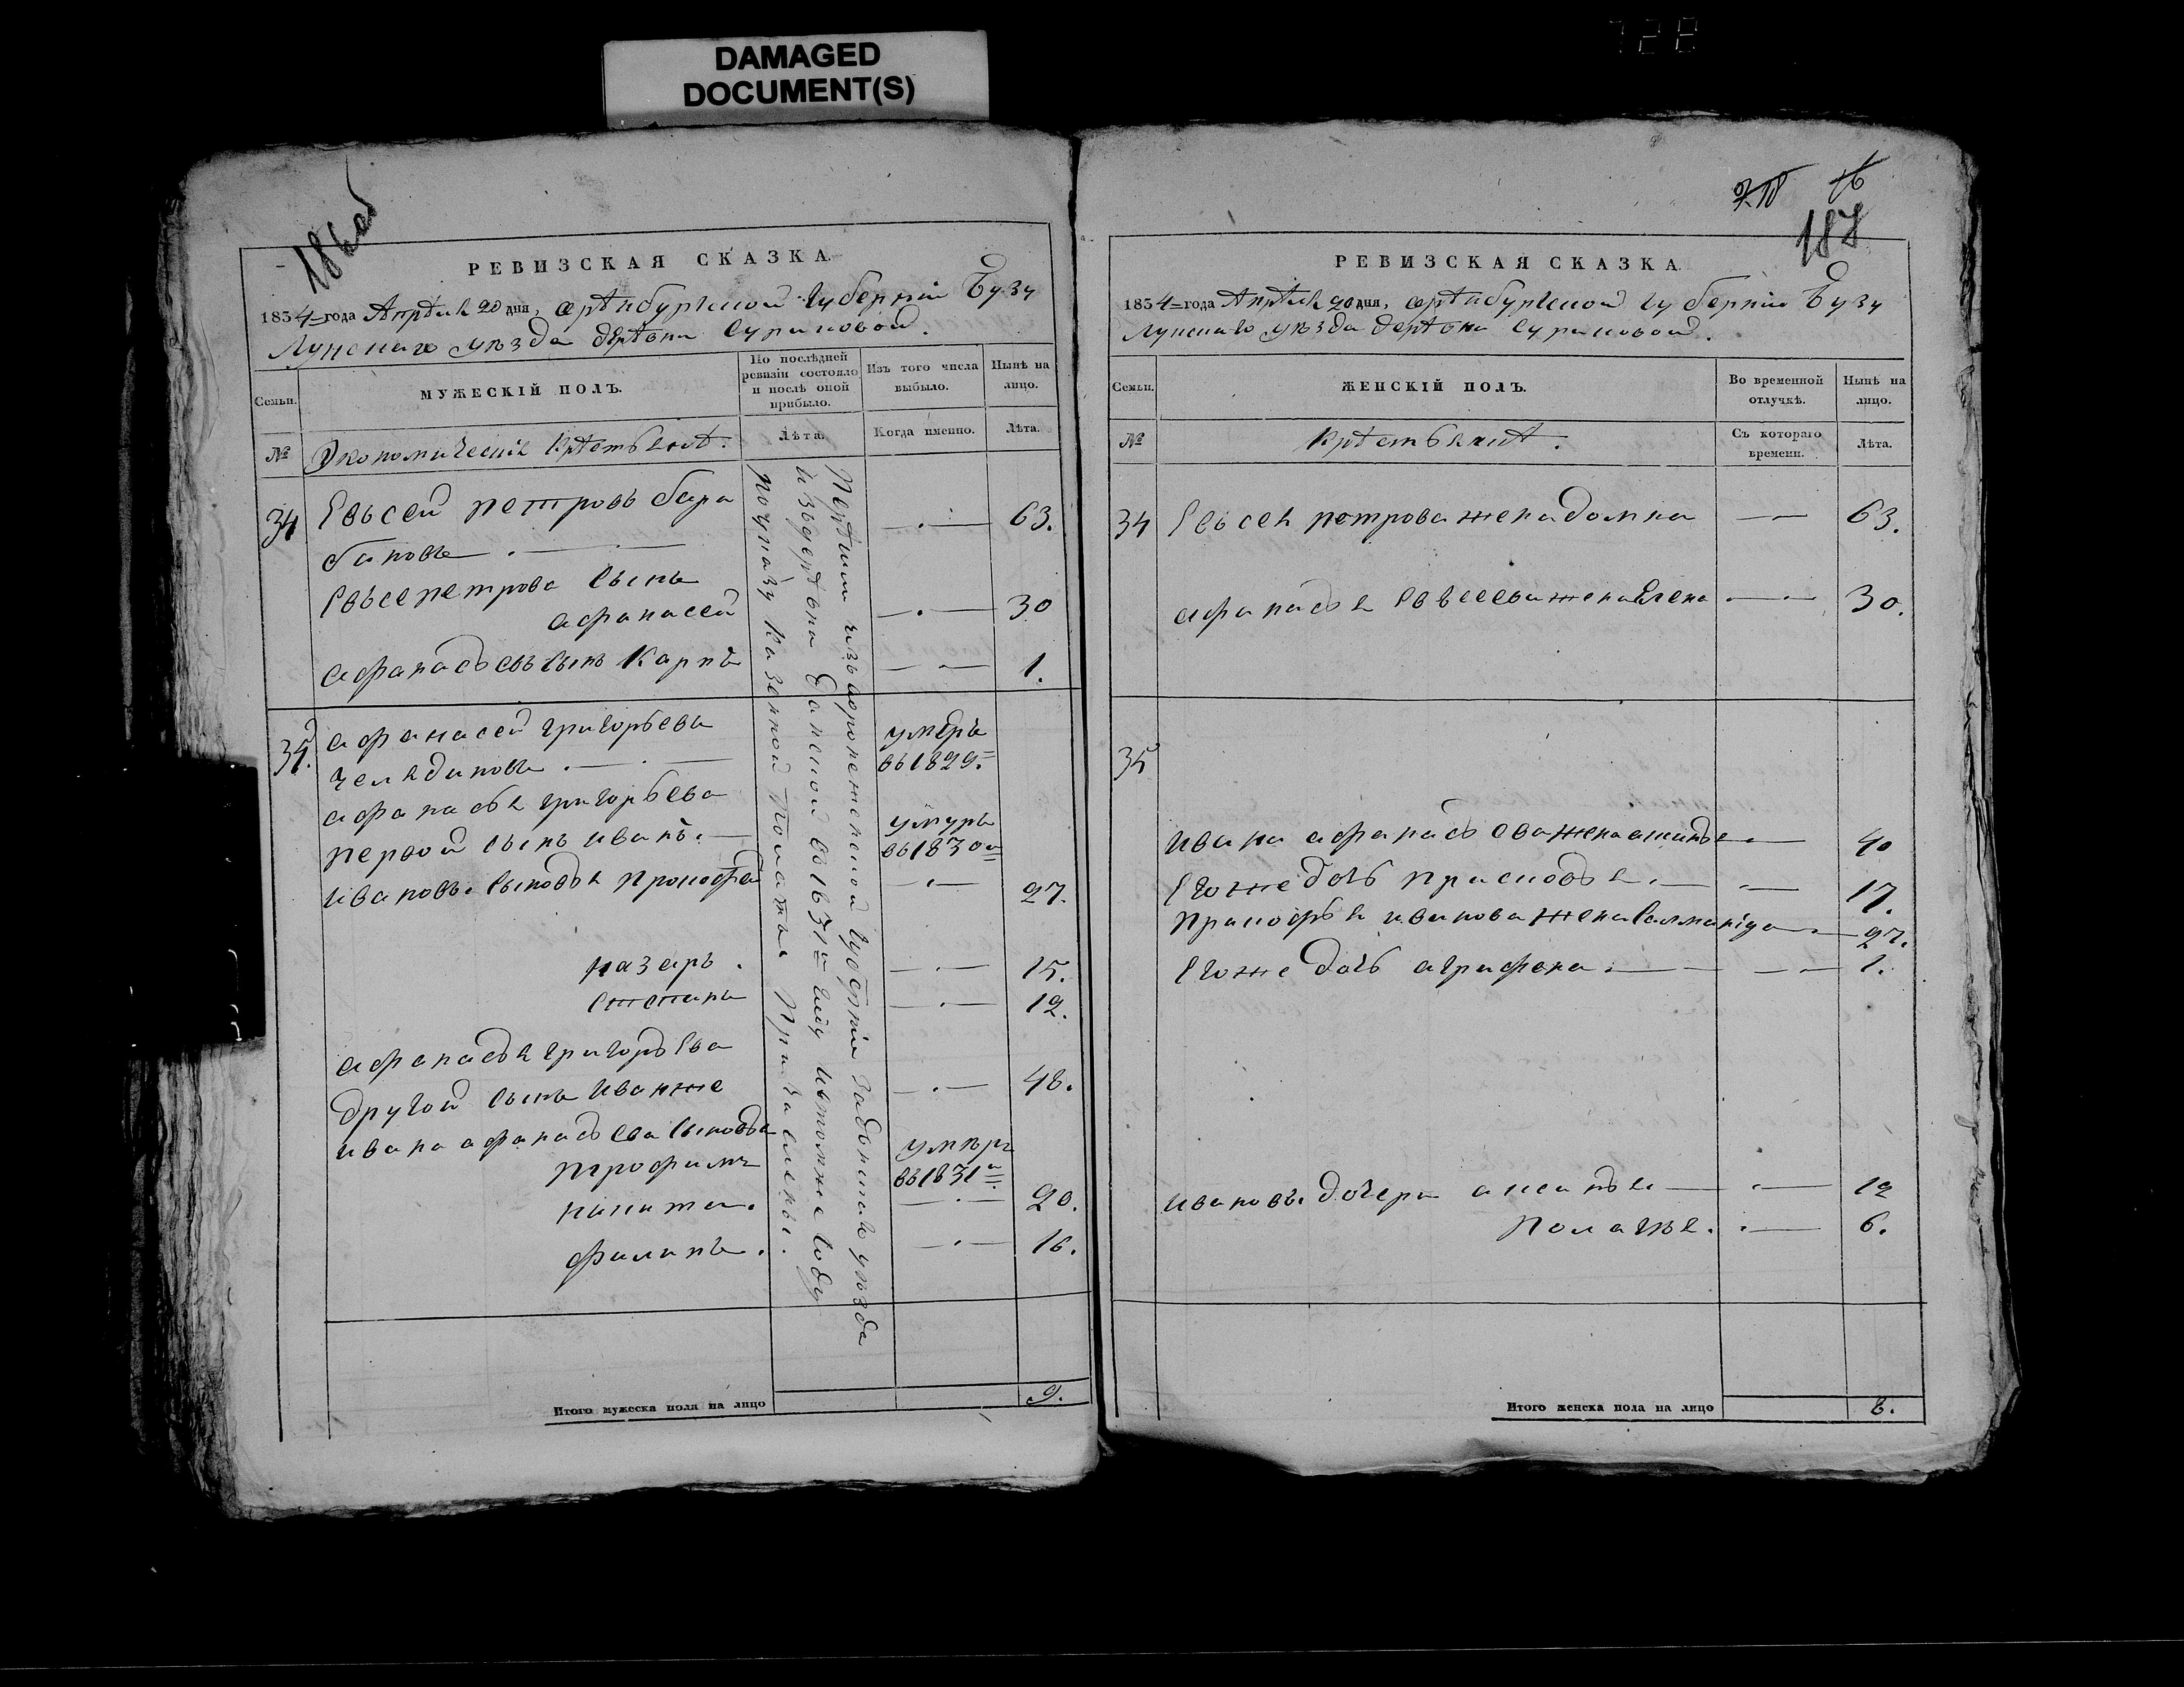 DAMAGED
DOCUMENT(S)
186 об
РЕВИЗСКАЯ СКАЗКА
1834 года Апреля 20 дня, оренбургской губернии Бузу
лунскаго уезда деревни Суриковой.
Семьи.
МУЖЕСКІЙ ПОЛЪ.
По послѣдней ревизіи состояло и послѣ оной прибыло.
Изъ того числа выбыло.
Нынѣ на лицо.
№
Экономическіе крестьяне.
Лѣта.
Когда именно.
Лѣта.
34 Евьсей петровъ бара — · — 63.
бановъ
Евьсе петрова сынъ
афанасей — · — 30
афанасьевъ сынъ Карпъ — · — 1.
35. афанасей григорьевъ умеръ
челядиновъ въ 1829.
афанасья григорьева умеръ
первой сынъ иванъ. въ 1830
ивановы сыновья прокофей — · — 27.
назаръ. — · — 15.
степанъ — · — 12.
афанасья григорьева
другой сынъ иванже — · — 48.
ивана афанасьева сыновья
трофимъ умеръ въ 1831
никита. — · — 20.
филипъ. — · — 16.
изъ воронежской губерніи задонскаго уезда
изъ деревни въ 1831 году и втомже году
по указу казенной палаты причислены.
Итого мужеска пола на лицо 9.
187
РЕВИЗСКАЯ СКАЗКА
1834 года Апреля 20 дня, оренбургской губерніи Бузу
лунскаго уезда деревни Суриковой.
Семьи.
ЖЕНСКІЙ ПОЛЪ.
Во временной отлучкѣ.
Нынѣ на лицо.
№
крестьяне.
Съ котораго времени.
Лѣта.
34 Евсея петрова жена домна — 63.
афанасья Евсеева жена Елена — 30.
35
ивана афанасьева жена — 40
Егоже дочь прасковья — 17.
пракофья иванова жена — 27.
Егоже дочь аграфена — 1.
ивановы дочери — 12
полагея. — 6.
Итого женска пола на лицо 8.